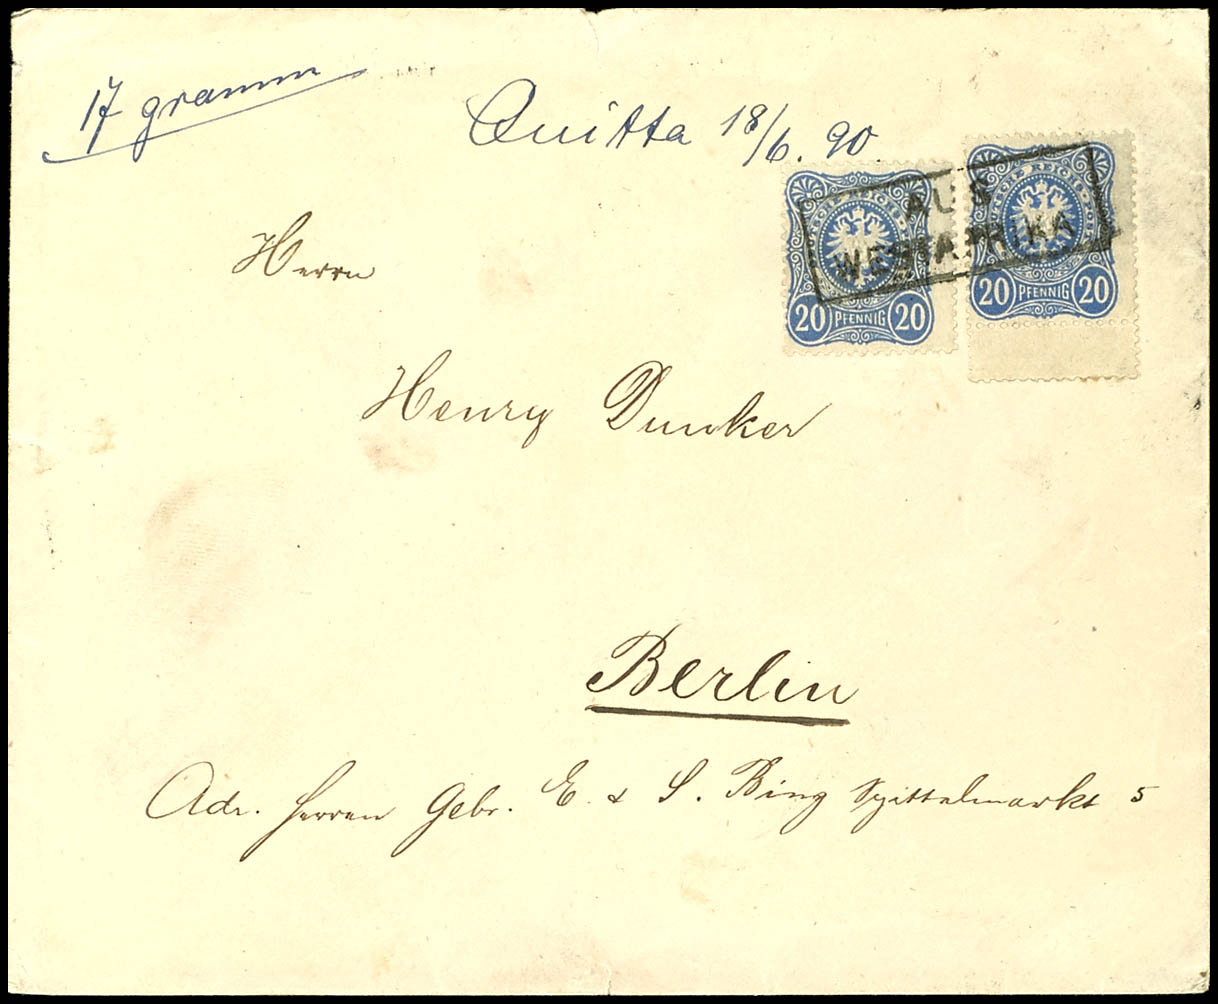 17 gramm
Quitta 18/6. 90.
AUS
WESTAFRIKA
REICHSPOST
20 PFENNIG 20
20 PFENNIG 20
Herrn
Henry Dunker
Berlin
Adr. Herren Gebr. E. & S. Bing Spittelmarkt 5